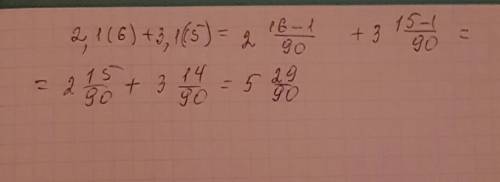 2,1(6)+3,1(5)= 2 16-1/90 + 3 15-1/90 =
= 2 15/90 + 3 14/90 = 5 29/90